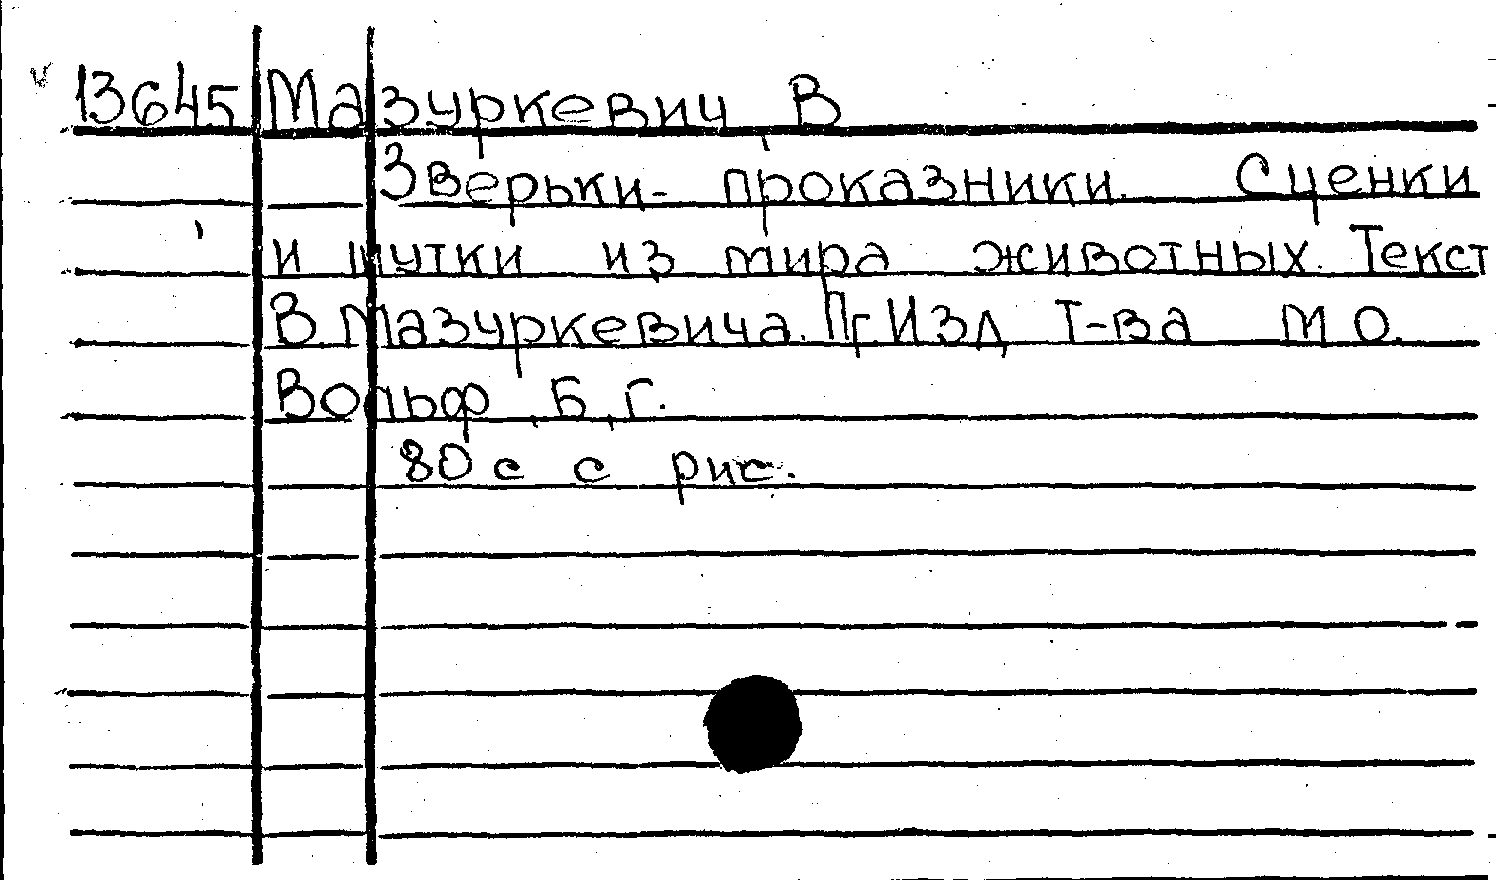 13645 Мазуркевич, В
Зверьки-проказники. Сценки
и шутки из мира животных. Текст
В Мазуркевича. Пг. Изд Т-ва М О.
Вольф, Б, г.
80 с с рис.